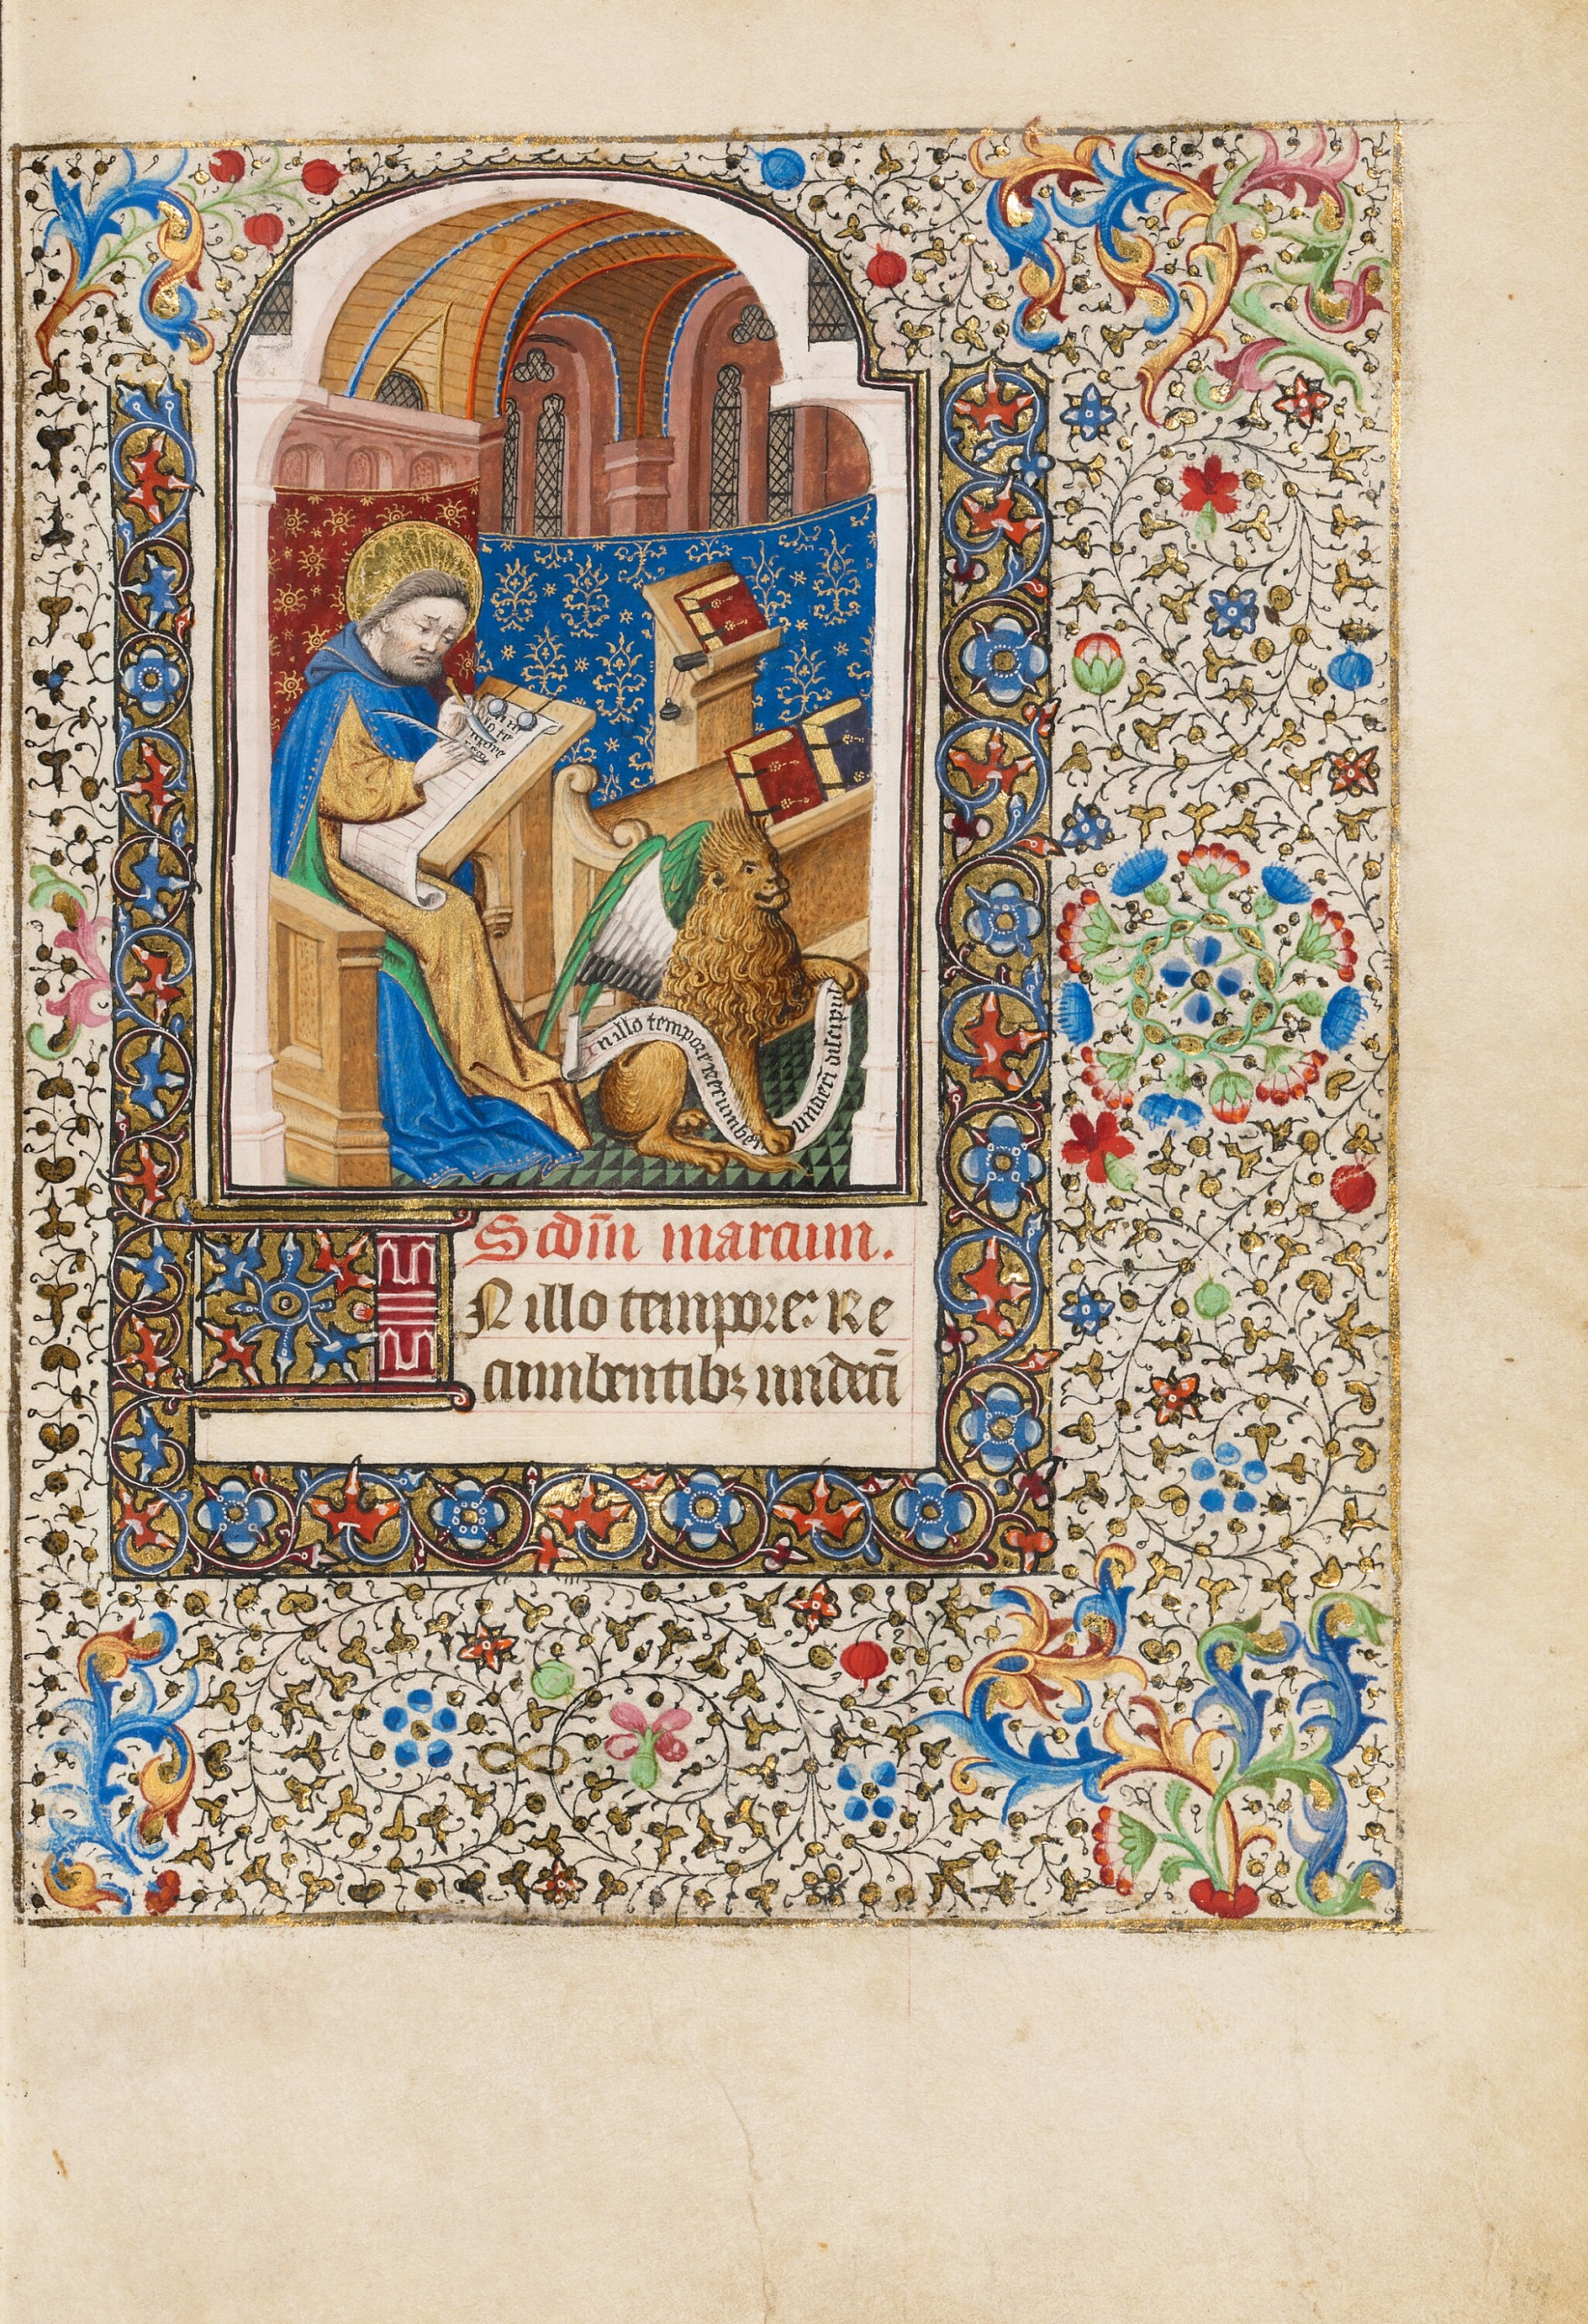 In illo tempore recumben undeci discipul
Scdm̄ marcum.
IN illo tempore: Re
cumbentibꝫ undeci̅